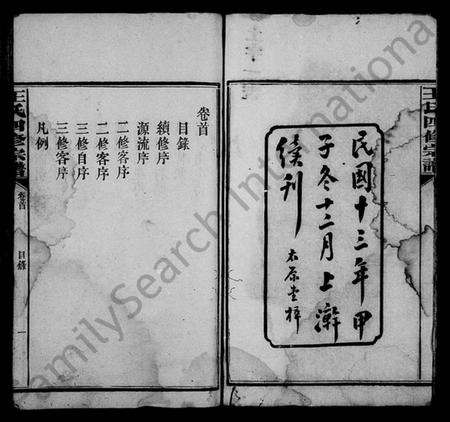 王氏四修宗譜
民國十三年甲
子冬十二月上澣
續刊 太原堂梓
卷首
目錄
續修序
源流序
二修客序
二修客序
三修自序
三修客序
凡例
王氏四修宗譜 卷首 目錄 一
FamilySearch International